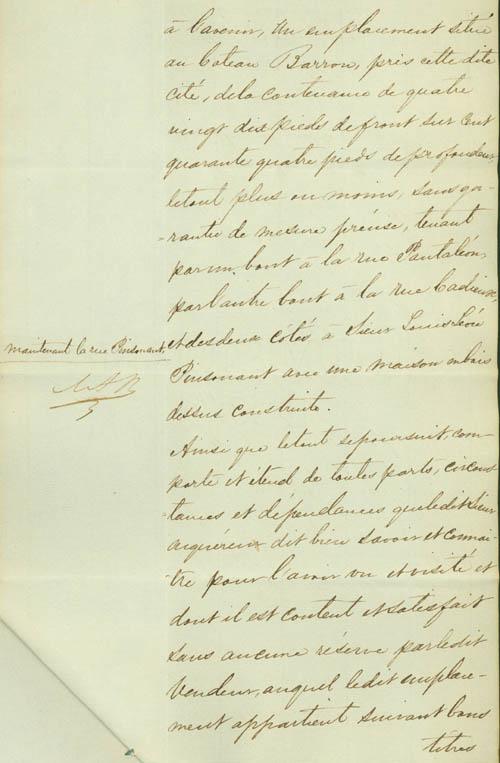 à l'avenir, Un emplacement situé
au Coteau Barron, près cette dite
cité, de la contenance de quatre
vingt dix pieds de front sur cent
quarante quatre pieds de profondeur
le tout plus ou moins, sans ga-
-rantie de mesure précise, tenant
par un bout à la rue Pantaléon,
par l'autre bout à la rue Cadieux,
maintenant la rue Pinsonaut,
et des deux côtés à Sieur Louis
Pinsonaut avec une maison en bois
dessus construite.
Ainsi que le tout se poursuit, com-
porte et étend de toutes parts, circons
-tances et dépendances que le dit Sieur
acquéreur dit bien savoir et connaî-
-tre pour l'avoir vu et visité et
dont il est content et satisfait
sans aucune réserve par le dit
Vendeur, auquel le dit emplace-
ment appartient suivant bons
titres